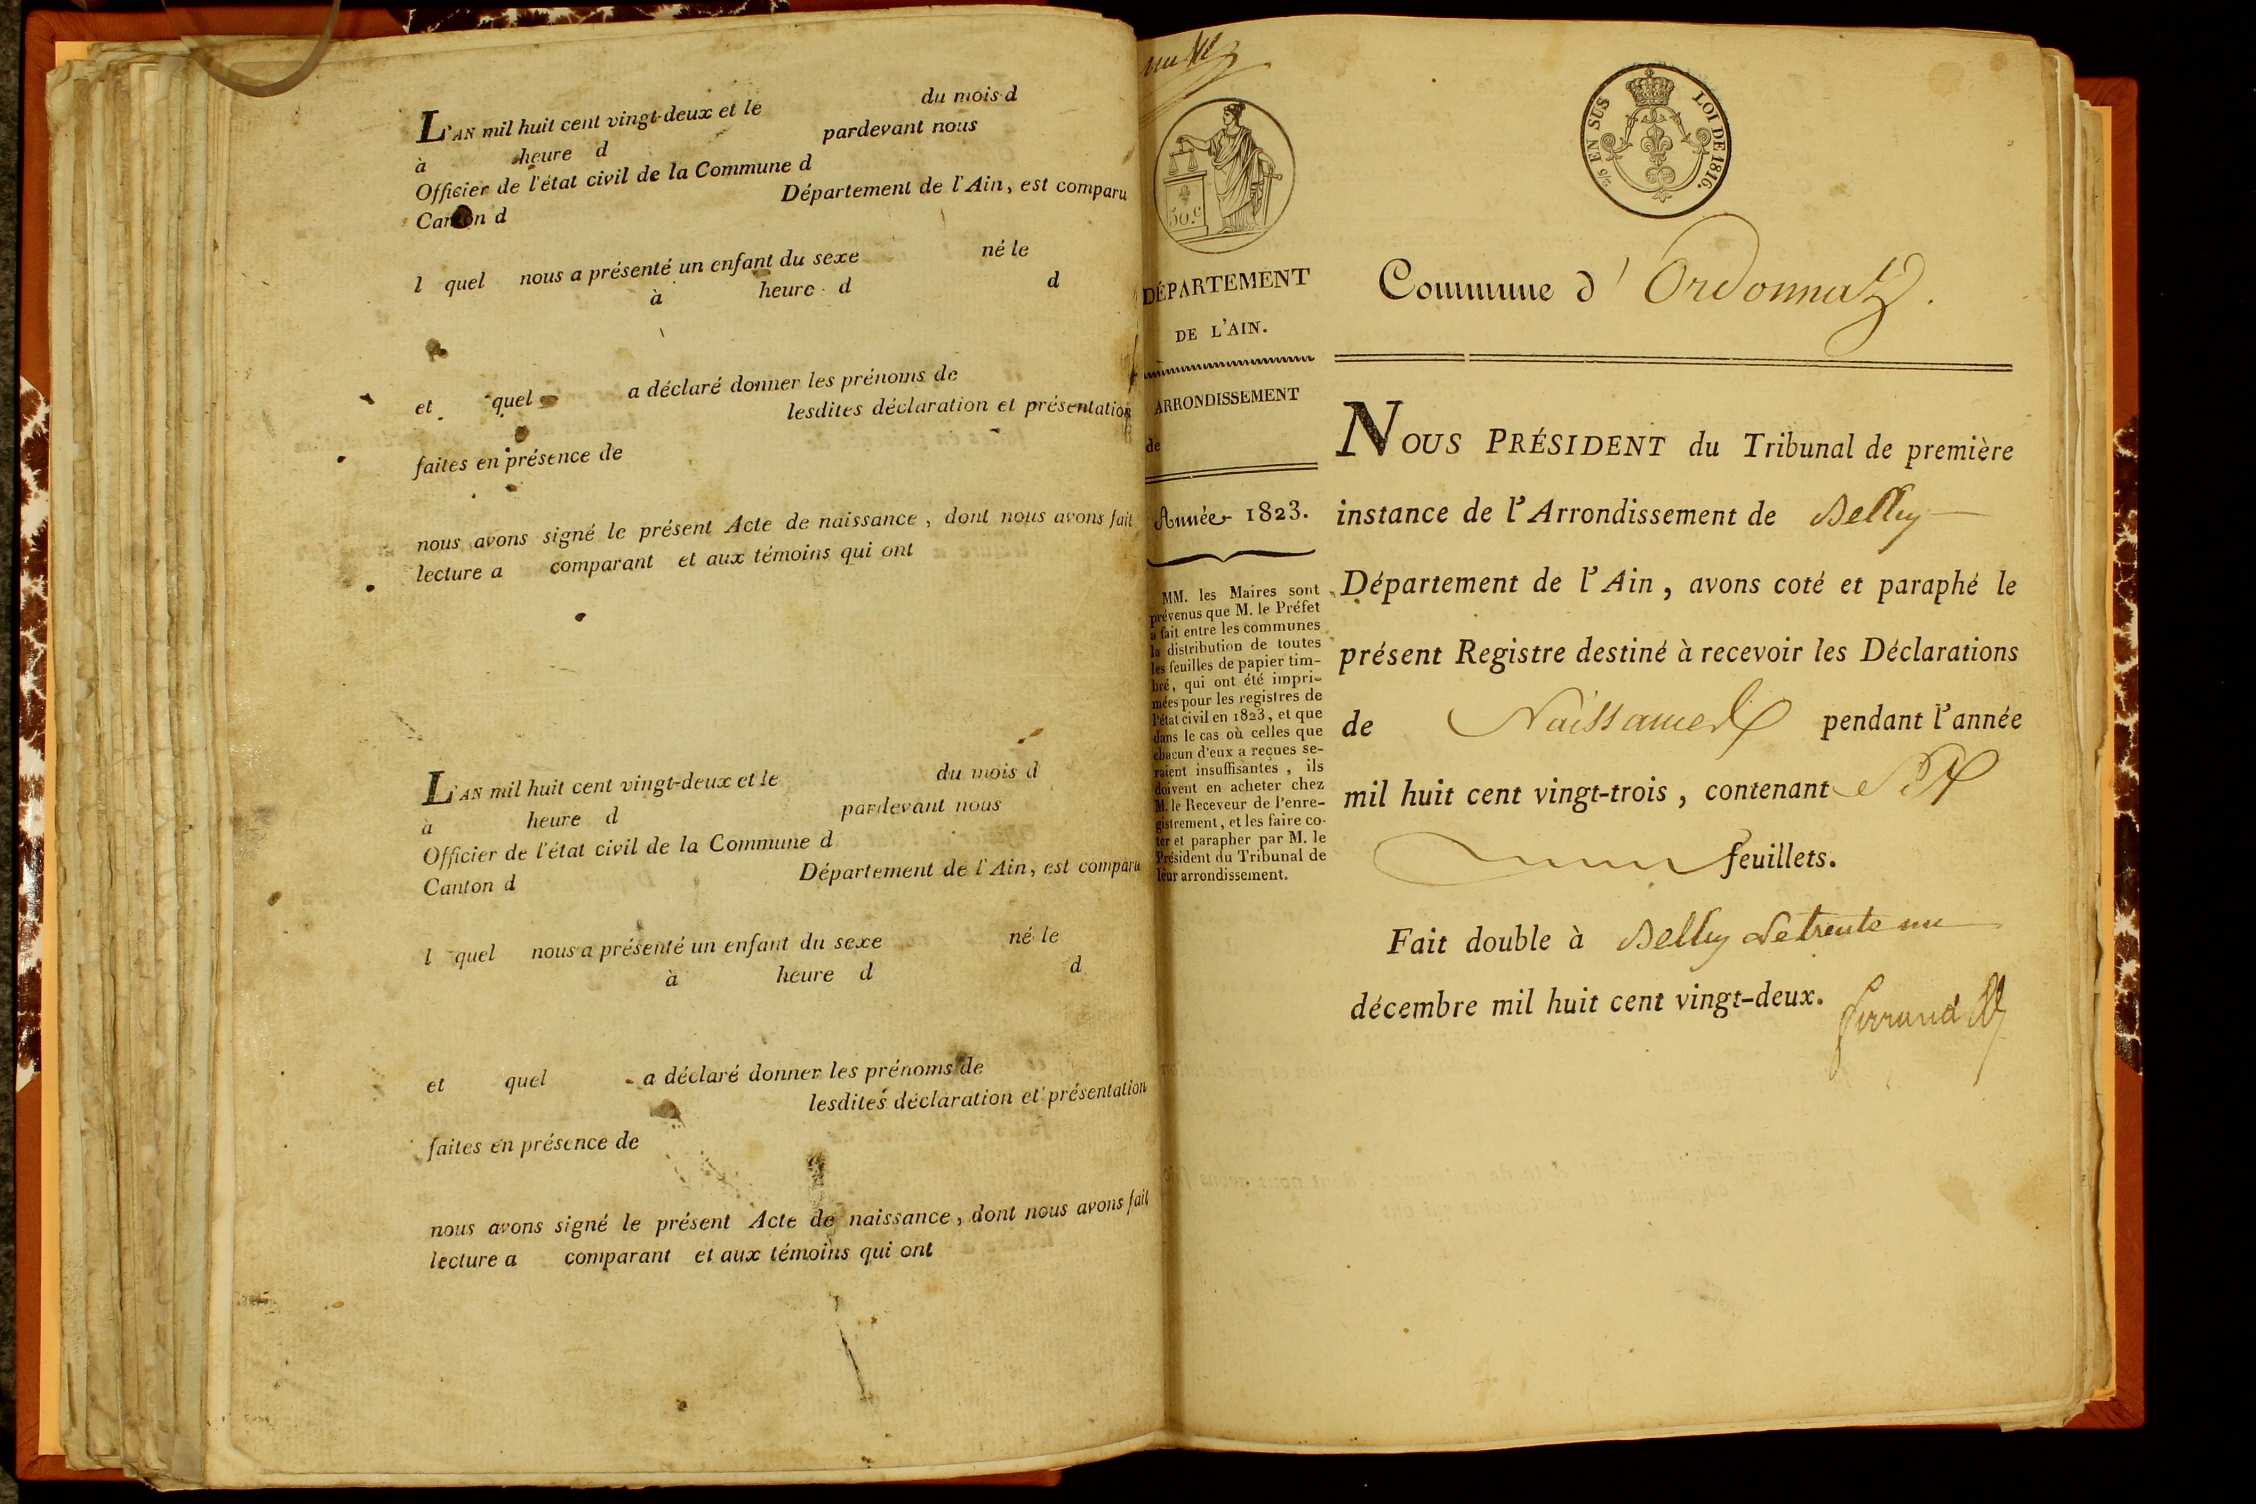 L'AN mil huit cent vingt-deux et le du mois d
à heure d pardevant nous
Officier de l'état civil de la Commune d
Canton d Département de l'Ain, est comparu
l quel nous a présenté un enfant du sexe né le
à heure d d
et quel a déclaré donner les prénoms de
lesdites déclaration et présentation
faites en présence de
nous avons signé le présent Acte de naissance, dont nous avons fait
lecture a comparant et aux témoins qui ont
L'AN mil huit cent vingt-deux et le du mois d
à heure d pardevant nous
Officier de l'état civil de la Commune d
Canton d Département de l'Ain, est comparu
l quel nous a présenté un enfant du sexe né le
à heure d d
et quel a déclaré donner les prénoms de
lesdites déclaration et présentation
faites en présence de
nous avons signé le présent Acte de naissance, dont nous avons fait
lecture a comparant et aux témoins qui ont
50.c
DÉPARTEMENT
DE L'AIN.
ARRONDISSEMENT
de
Année 1823.
MM. les Maires sont
prévenus que M. le Préfet
a fait entre les communes
la distribution de toutes
les feuilles de papier tim-
bré, qui ont été impri-
mées pour les registres de
l'état civil en 1823, et que
dans le cas où celles que
chacun d'eux a reçues se-
raient insuffisantes, ils
doivent en acheter chez
M. le Receveur de l'enre-
gistrement, et les faire co-
ter et parapher par M. le
Président du Tribunal de
leur arrondissement.
EN SUS LOI DE 1816.
Commune d'Ordonnaz.
NOUS PRÉSIDENT du Tribunal de première
instance de l'Arrondissement de Belley
Département de l'Ain, avons coté et paraphé le
présent Registre destiné à recevoir les Déclarations
de Naissances pendant l'année
mil huit cent vingt-trois, contenant
feuillets.
Fait double à Belley le trente un
décembre mil huit cent vingt-deux.